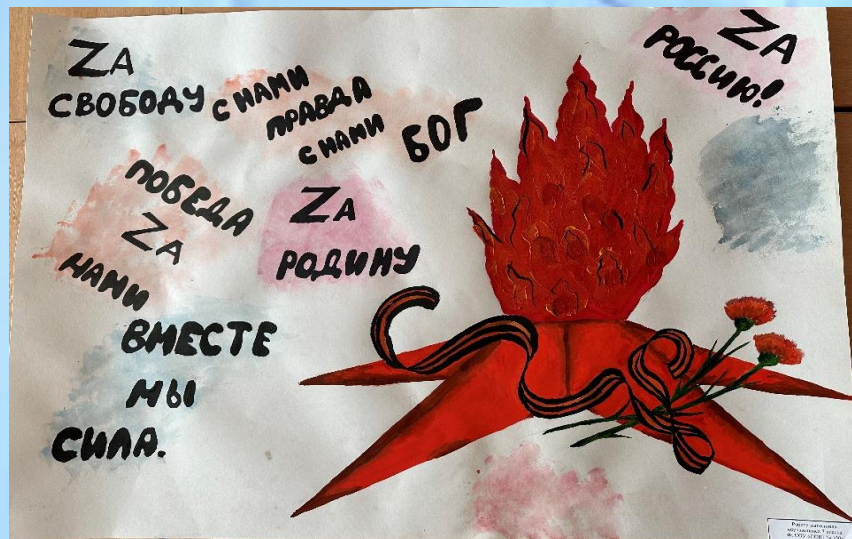 ZA
СВОБОДУ
С НАМИ
ПРАВДА
С НАМИ
БОГ
ZA
РОССИЮ!
ПОБЕДА
ZA
НАМИ
ZA
РОДИНУ
ВМЕСТЕ
МЫ
СИЛА.